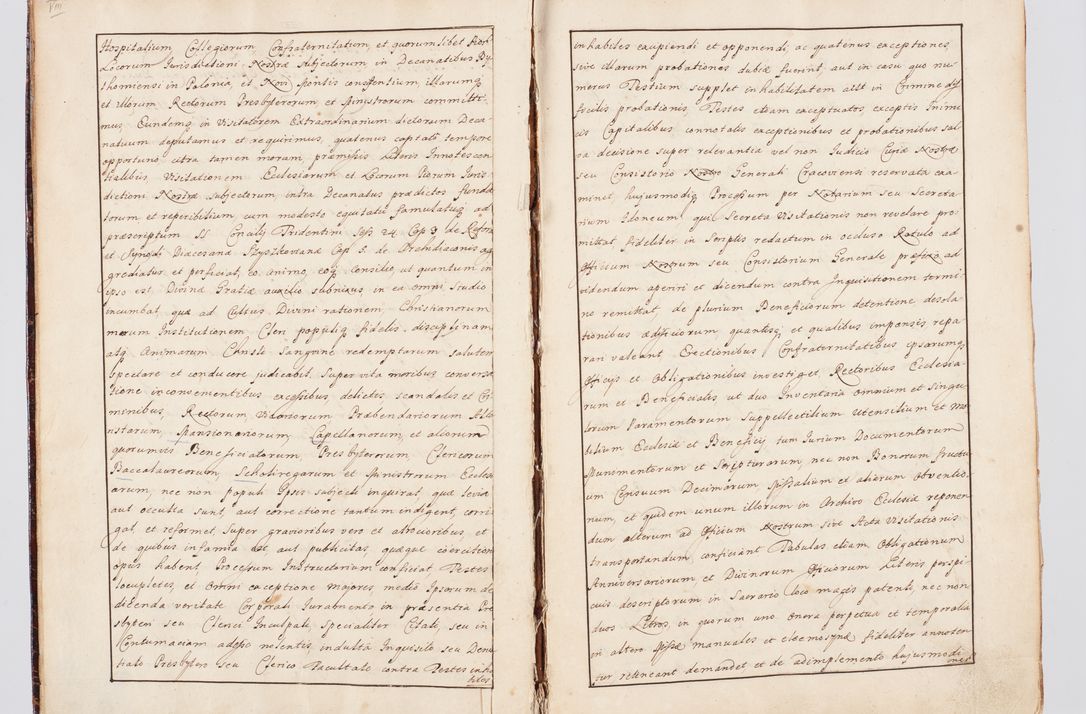 VIII
Hospitalium, Collegiorum, Confraternitatum, et quorumlibet
Locorum Jurisdictioni Nostræ Subjectorum, in Decanatibus By
thomiensi in Polonia, et Novi Montis consistentium, illarumq
et illorum, Rectorum Presbyterorum, et Ministrorum committi
mus, Eundemq in Visitatorem Extraordinarium dictorum Deca
natuum deputamus et requirimus, quatenus captato tempore
opportuno citra tamen moram, præmissis Literis Innotescen
tialibus, Visitationem Ecclesiarum et Locorum Piorum Juris
dictioni Nostræ subjectorum, intra Decanatus prædictos funda
torum et reperibilium, cum modesto equitatu famulatuq ad
præscriptum SS Concilij Tridentini Sess 24 Cap 3 de Reform
et Synodi Diæcesanæ Szyszkovianæ Cap 5. de Archidiaconis ag
grediatur et perficiat, eo animo, eoq consilio, ut quantum in
ipso est, Divinæ Gratiæ auxilio subnixus, in ea omni Studio
incumbat, quæ ad Cultus Divini rationem, Christianorum
morum Institutionem Cleri populiq fidelis, disciplinam
atq Animarum Christi Sanguine redemptarum salutem
spectare et conducere judicabit. Super vita moribus conversa
tione inconvenientibus excessibus, delictis scandalis et Cri
minibus, Rectorum Vicariorum, Præbendariorum Alta
ristarum, Mansionariorum, Capellanorum, et aliorum
quorumvis Beneficiatorum, Presbyterorum, Clericorum
Baccalaureorum, Scholiregarum et Ministrorum Ecclesi
arum, nec non populi Ipsis subjecti inquirat, quæ levia
aut occulta sunt, aut correctione tantum indigent, corri
gat et reformet, Super gravioribus vero et atrocioribus, et
de quibus infamia est, aut publicitas, quæque coercition
opus habent, Processum Instructorium conficiat Testes
locupletes, et Omni exceptione majores, medio Ipsorum de
dicenda veritate Corporali Juramento in præsentia Pres
byteri seu Clerici Inculpati, Specialiter Citati, seu in
Contumaciam adesse nolentis, indulta Inquisito seu Denun
tiato Presbytero seu Clerico Facultate contra Testes inha
biles
inhabiles excipiendi et opponendi, ac quatenus exceptiones,
sive illarum probationes dubiæ fuerint, aut in casu quo nu
merus Testium supplet inhabilitatem aut in Crimine dif
ficilis probationis, Testes etiam exceptuatos, exceptis Inimi
cis Capitalibus connotatis exceptionibus et probationibus sal
va decisione super relevantia vel non Judicio Curiæ Nostræ
seu Consistorio Nostro Generali Cracoviensi reservata exa
minet, hujusmodiq Processum per Notarium seu Secreta
rium Idoneum, qui Secreta Visitationis non revelare pro
mittat, fideliter in Scriptis redactum in occluso Rotulo ad
Officium Nostrum seu Consistorium Generale præfixo ad
videndum aperiri et dicendum contra Inquisitionem termi
no remittat, de plurium Beneficiorum detentione desola
tionibus ædificiorum, quantisq et qualibus impensis repa
rari valeant Erectionibus Confraternitatibus ipsarumq
Officijs et Obligationibus investiget, Rectoribus Ecclesia
rum et Beneficialis, ut duo Inventaria omnium et singu
lorum Paramentorum Suppellectilium Utensilium et Mo
bilium Ecclesiæ et Beneficij, tum Jurium Documentorum
Munimentorum et Scripturarum, nec non Bonorum, fructu
um Censuum Decimarum Missalium et aliorum obventio
num, et quidem unum illorum in Archivo Ecclesiæ reponen
dum alterum ad Officium Nostrum sive Acta Visitationis
transportandum, conficiant Tabulas etiam Obligationum
Anniversariorum, et Divinorum Officiorum Literis perspi
cuis descriptorum in Sacrario loco magis patenti, nec non
duos Libros, in quorum uno Onera perpetua et temporalia
in altero Missæ manuales et eleemosynæ fideliter annoten
tur retineant demandet, et de adimplemento hujusmodi